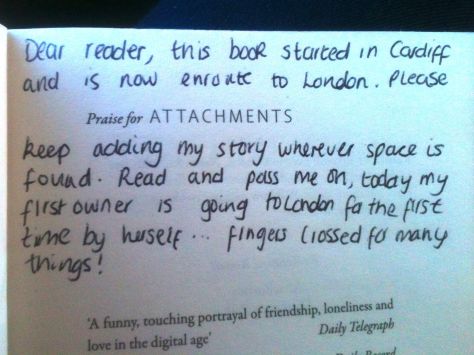 Dear reader, this book started in Cardiff
and is now enroute to London. Please
Praise for ATTACHMENTS
keep adding my story wherever space is
found. Read and pass me on, today my
first owner is going to London fo the first
time by herself... fingers crossed for many
things!
'A funny, touching portrayal of friendship, loneliness and
love in the digital age'
Daily Telegraph
Daily Record